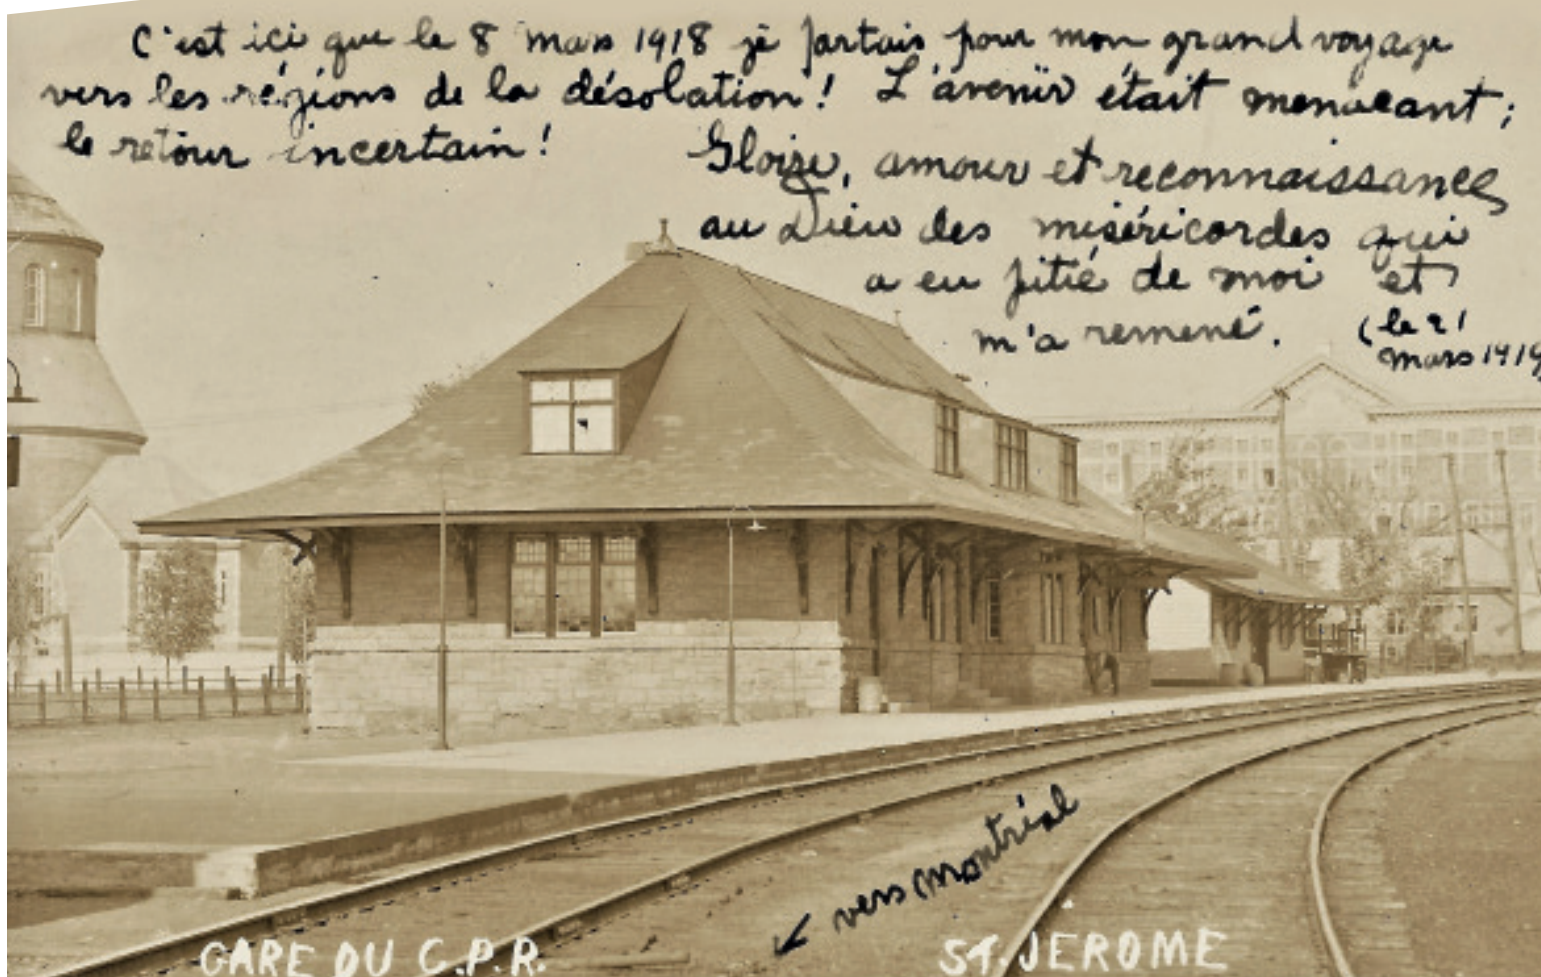 C'est ici que le 8 mars 1918 je partais pour mon grand voyage
vers les régions de la désolation! L'avenir était menacant;
le retour incertain!
Gloire, amour et reconnaissance
au Dieu des miséricordes qui
a eu pitié de moi et
m'a remené.
(le 21
mars 1919)
vers Montréal
GARE DU C.P.R.
ST. JEROME